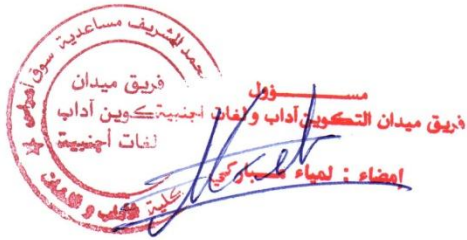 محمد الشريف مساعدية سوق أهراس
فريق ميدان
تكوين آداب
لغات أجنبية
كلية الآداب و اللغات
مســـــؤول
فريق ميدان التكوين آداب ولغات اجنبية
إمضاء : لمياء مسباركي